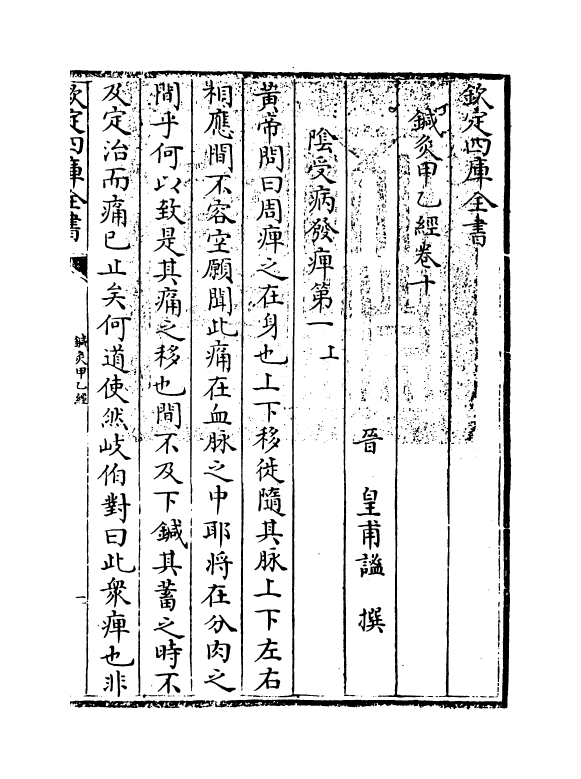 欽定四庫全書
鍼灸甲乙經卷十
晉 皇甫謐 撰
陰受病發痺第一上
黃帝問曰周痺之在身也上下移徙隨其脉上下左右
相應間不容空願聞此痛在血脉之中耶將在分肉之
間乎何以致是其痛之移也間不及下鍼其蓄之時不
及定治而痛已止矣何道使然岐伯對曰此衆痺也非
欽定四庫全書
鍼灸甲乙經
一